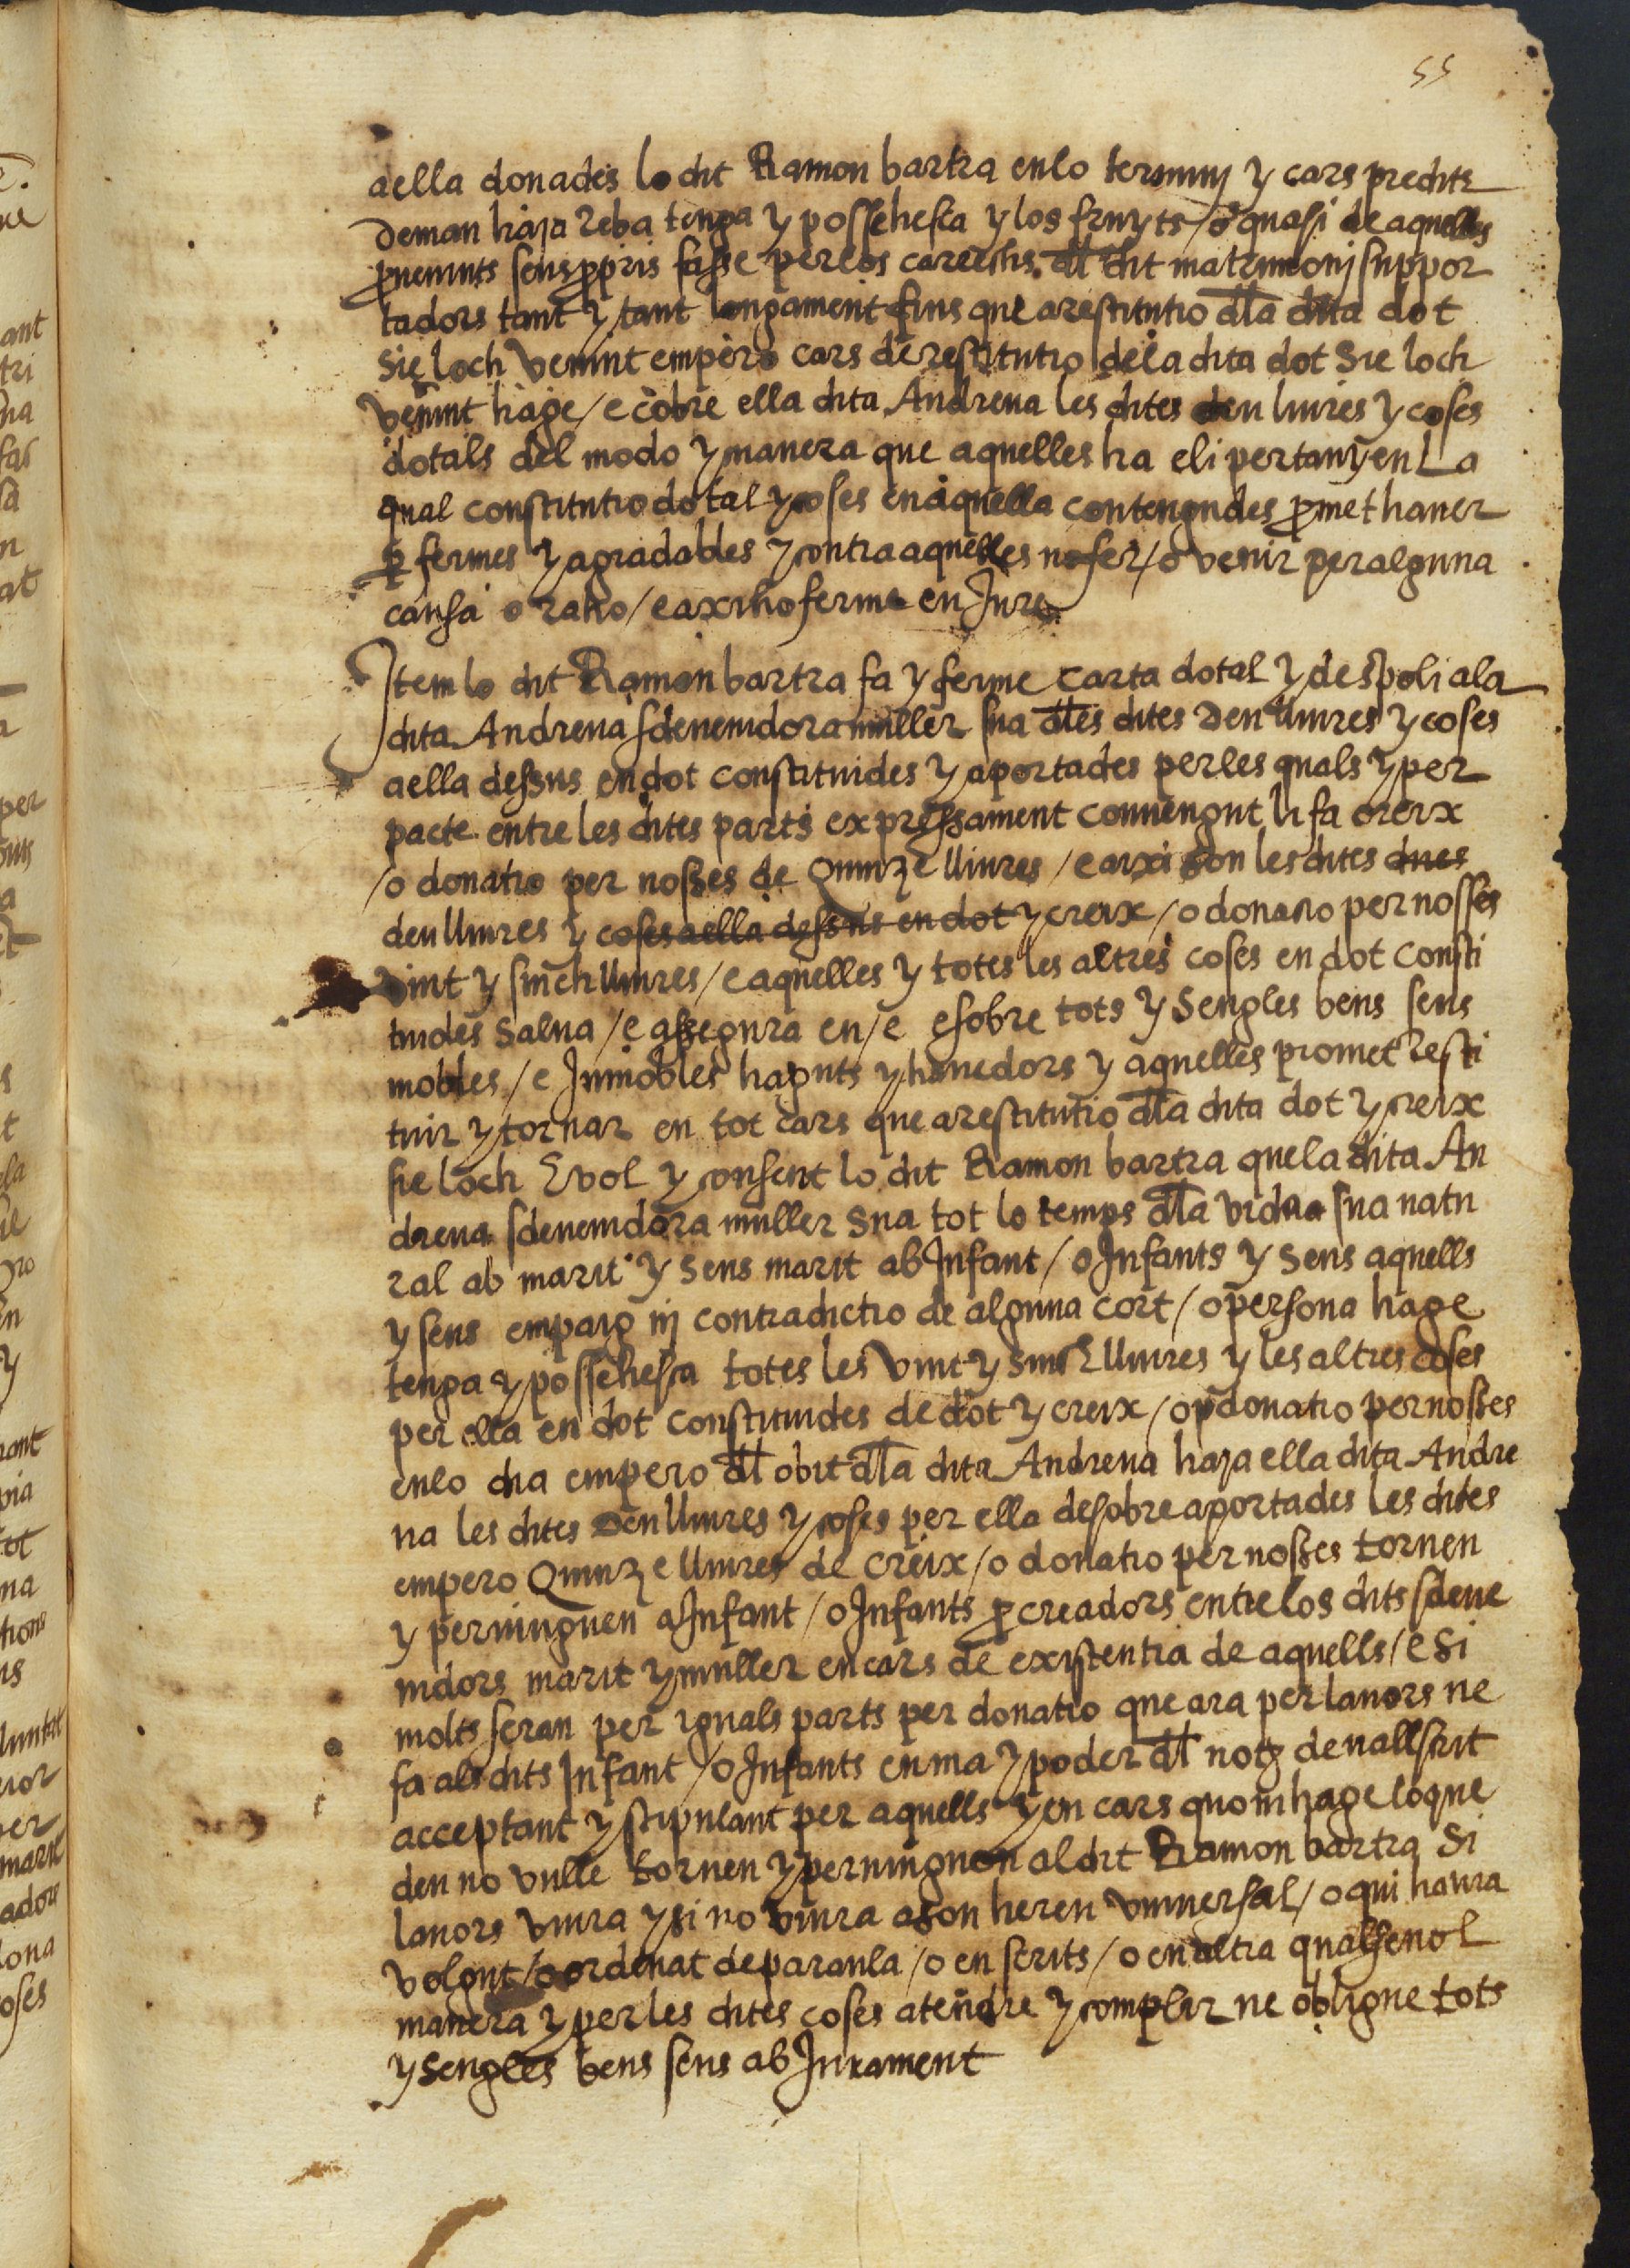 55
aella donades lo dit Ramon bartra enlo terminj y cars predits
Deman haja reba tenga y possehesca y los fruyts / o quasi de aquelles
provenints sens propris fasse per los carrechs dl dit matrimonj suppor
tadors tant y tant longament fins que a restitutio dla dita dot
sie loch venint empero cars de restitutio de la dita dot sie loch
venint hage / e cobre ella dita Andreua les dites deu liures y coses
dotals del modo y manera que aquelles ha eli pertanyen La
qual constitutio dotal y coses en aquella contengudes promet hauer
per fermes y agradables y contra aquelles no fer / o venir per alguna
causa o ratio / e axi ho ferma en Jure
Item lo dit Ramon bartra fa y ferme carta dotal y de spoli ala
dita Andreua sdeuenidora muller sua dles dites Deu lliures y coses
aella dessus en dot constituides y aportades per les quals y per
pacte entre les dites parts expressament conuengut li fa creix
/ o donatio per nosses de Quinze lliures / e axi son les dites dues
deu lliures y coses aella dessus en dot y creix / o donatio per nosses
vint y sinch lliures / e aquelles y totes les altres coses en dot consti
tuides salua / e assegura en / e esobre tots y sengles bens sens
mobles / e Inmobles haguts y hauedors y aquelles promet resti
tuir y tornar en tot cars que a restitutio dla dita dot y creix
sie loch E vol y consent lo dit Ramon bartra que la dita An
dreua sdeuenidora muller sua tot lo temps dla vida sua natu
ral ab marit y sens marit ab Infant / o Infants y sens aquells
y sens emparo nj contradictio de alguna cort / o persona hage
tenga y possehesca totes les vint y sinch lliures y les altres coses
per ella en dot constituides de dot y creix / o donatio per nosses
en lo dia empero dl obit dla dita Andreua haja ella dita Andre
ua les dites Deu lliures y coses per ella desobre aportades les dites
empero Quinze lliures de creix / o donatio per nosses tornen
y peruinguen a Infant / o Infants procreadors entre los dits sdeue
nidors marit y muller en cars de existentia de aquells / e si
molts seran per iguals parts per donatio que ara per lauors ne
fa als dits Infant / o Infants en ma y poder dl notj deuallscrit
acceptant y stipulant per aquells y en cars quo ni hage lo que
deu no vulle tornen y peruinguen al dit Ramon bartra si
lauors viura y si no viura a son hereu vniuersal / o qui haura
volgut / o ordenat de paraula / o en scrits / o en altra qualseuol
manera y per les dites coses atendre y complir ne obligue tots
y sengles bens sens ab Jurament